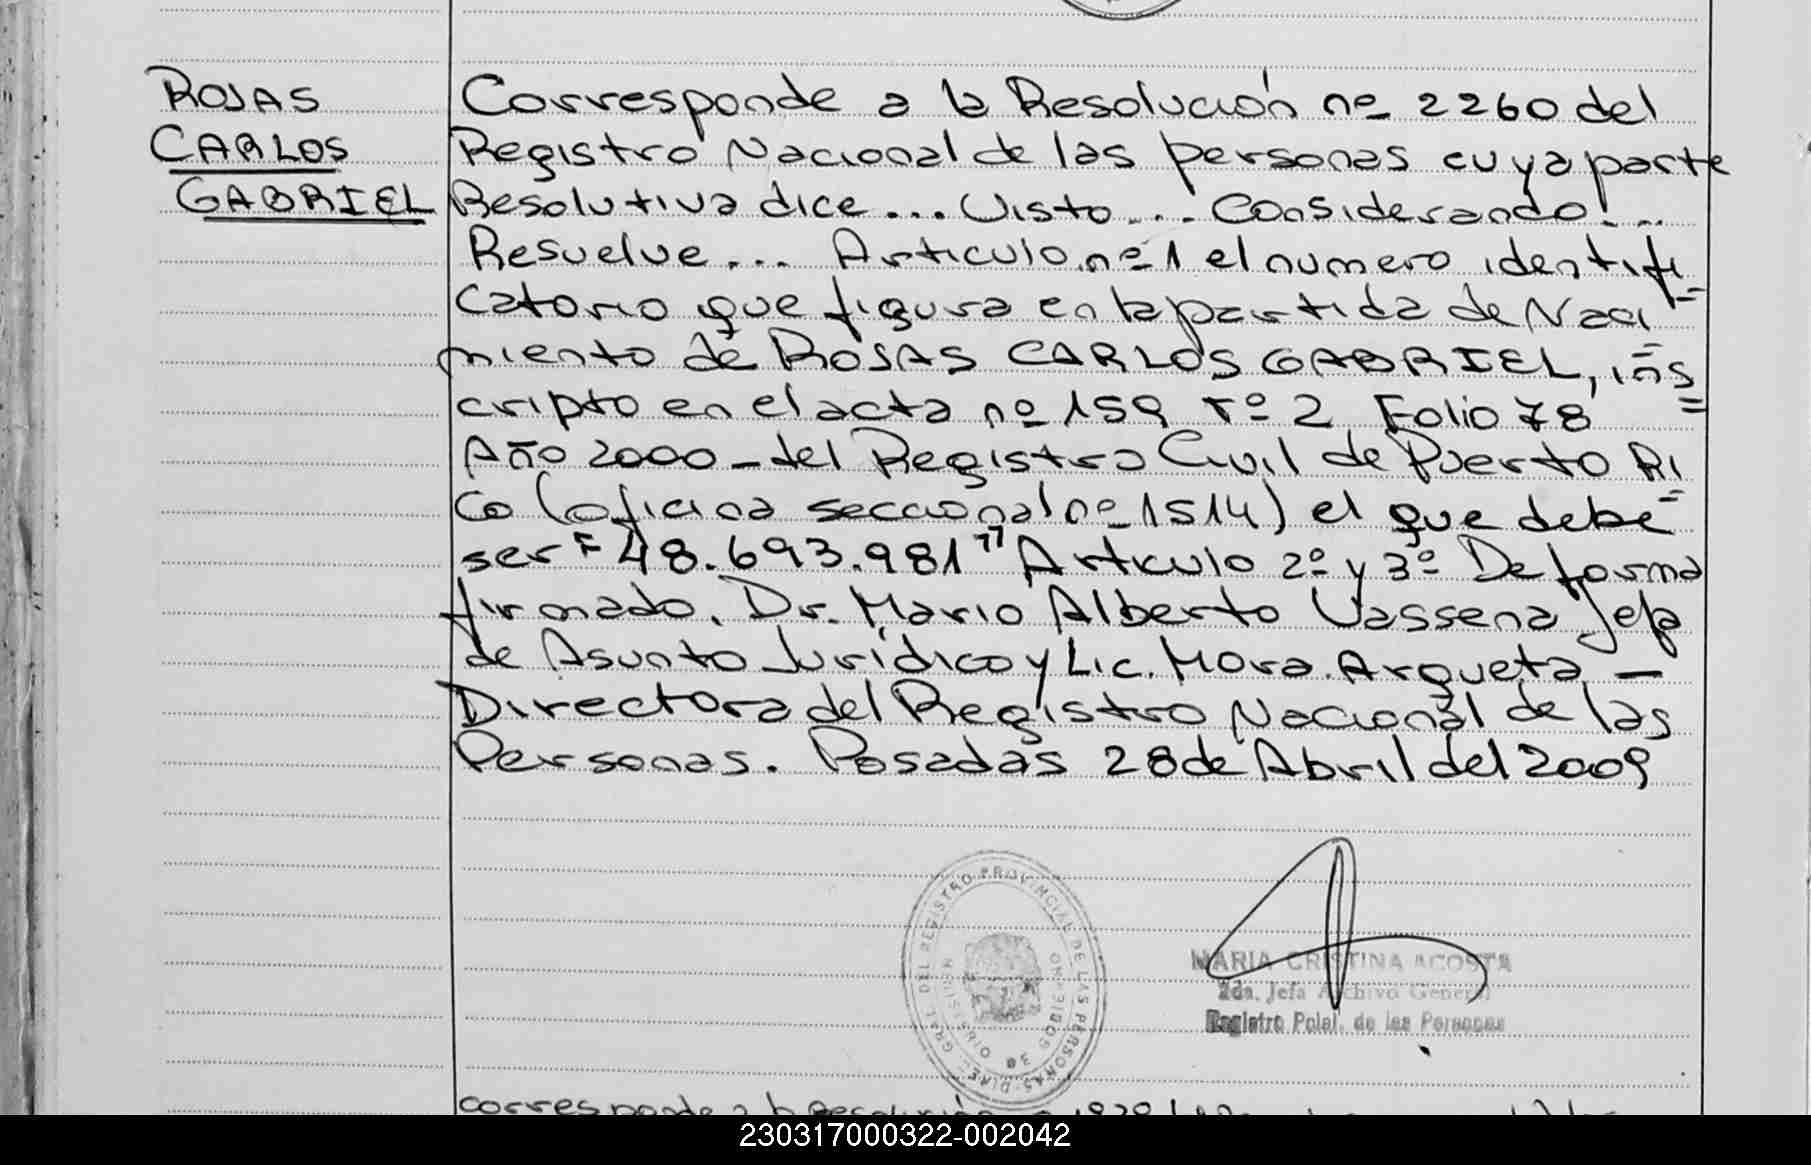 ROJAS
CARLOS
GABRIEL
Corresponde a la Resolución nº 2260 del
Registro Nacional de las personas cuya parte
Resolutiva dice... Visto... Considerando!...
Resuelve... Articulo nº 1 el numero identifi
catorio que figura en la partida de Naci=
miento de ROJAS CARLOS GABRIEL, ins=
cripto en el acta nº 159 Tº 2 Folio 78
Año 2000 - del Registro Civil de Puerto Ri=
co (oficina seccional nº 1514) el que debe
ser " 48.693.981" Articulo 2º y 3º De forma
firmado. Dr. Mario Alberto Vassena Jefe
de Asunto Jurídico y Lic. Mora Arqueta -
Directora del Registro Nacional de las
Personas. Posadas 28 de Abril del 2009
DIREC. GRAL. DEL REGISTRO PROVINCIAL DE LAS PERSONAS
MARIA CRISTINA ACOSTA
2da. Jefa Archivo General
Registro Pcial. de las Personas
corresponde a la Resolución
230317000322-002042